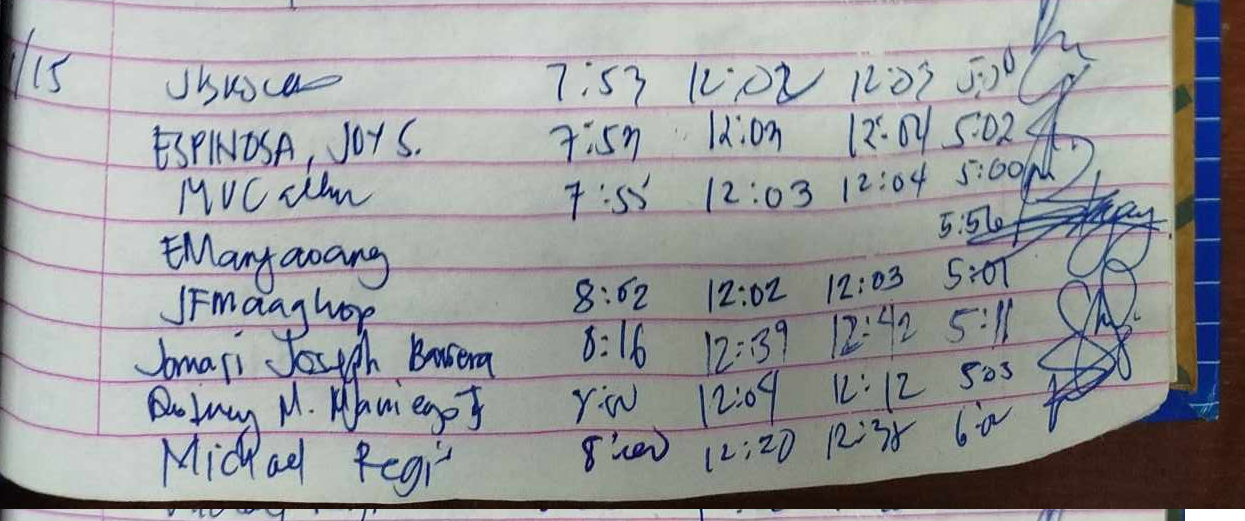 /15 7:53 12:02 12:03
ESPINOSA, JOY S. 7:53 12:03 12:04 5:02
MVC 7:55 12:03 12:04 5:00
EManyaoang 5:56
JFmaaghop 8:02 12:02 12:03 5:01
Jomari Joseph Barrera 8:16 12:39 12:42 5:11
M. 12:04 12:12 5:03
Michael Regi 12:20 12:38